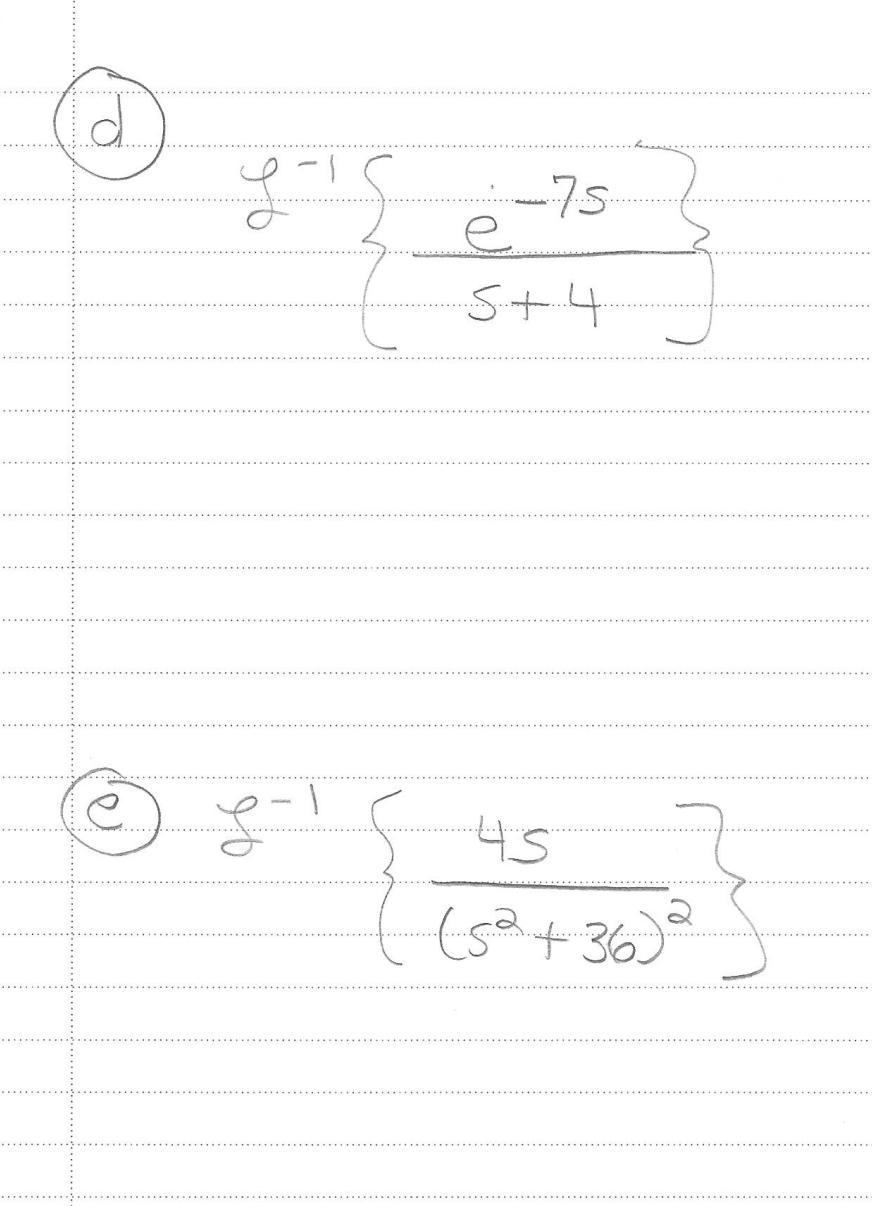 d
ℒ⁻¹ { e⁻⁷ˢ / s+4 }
e ℒ⁻¹ { 4s / (s²+36)² }